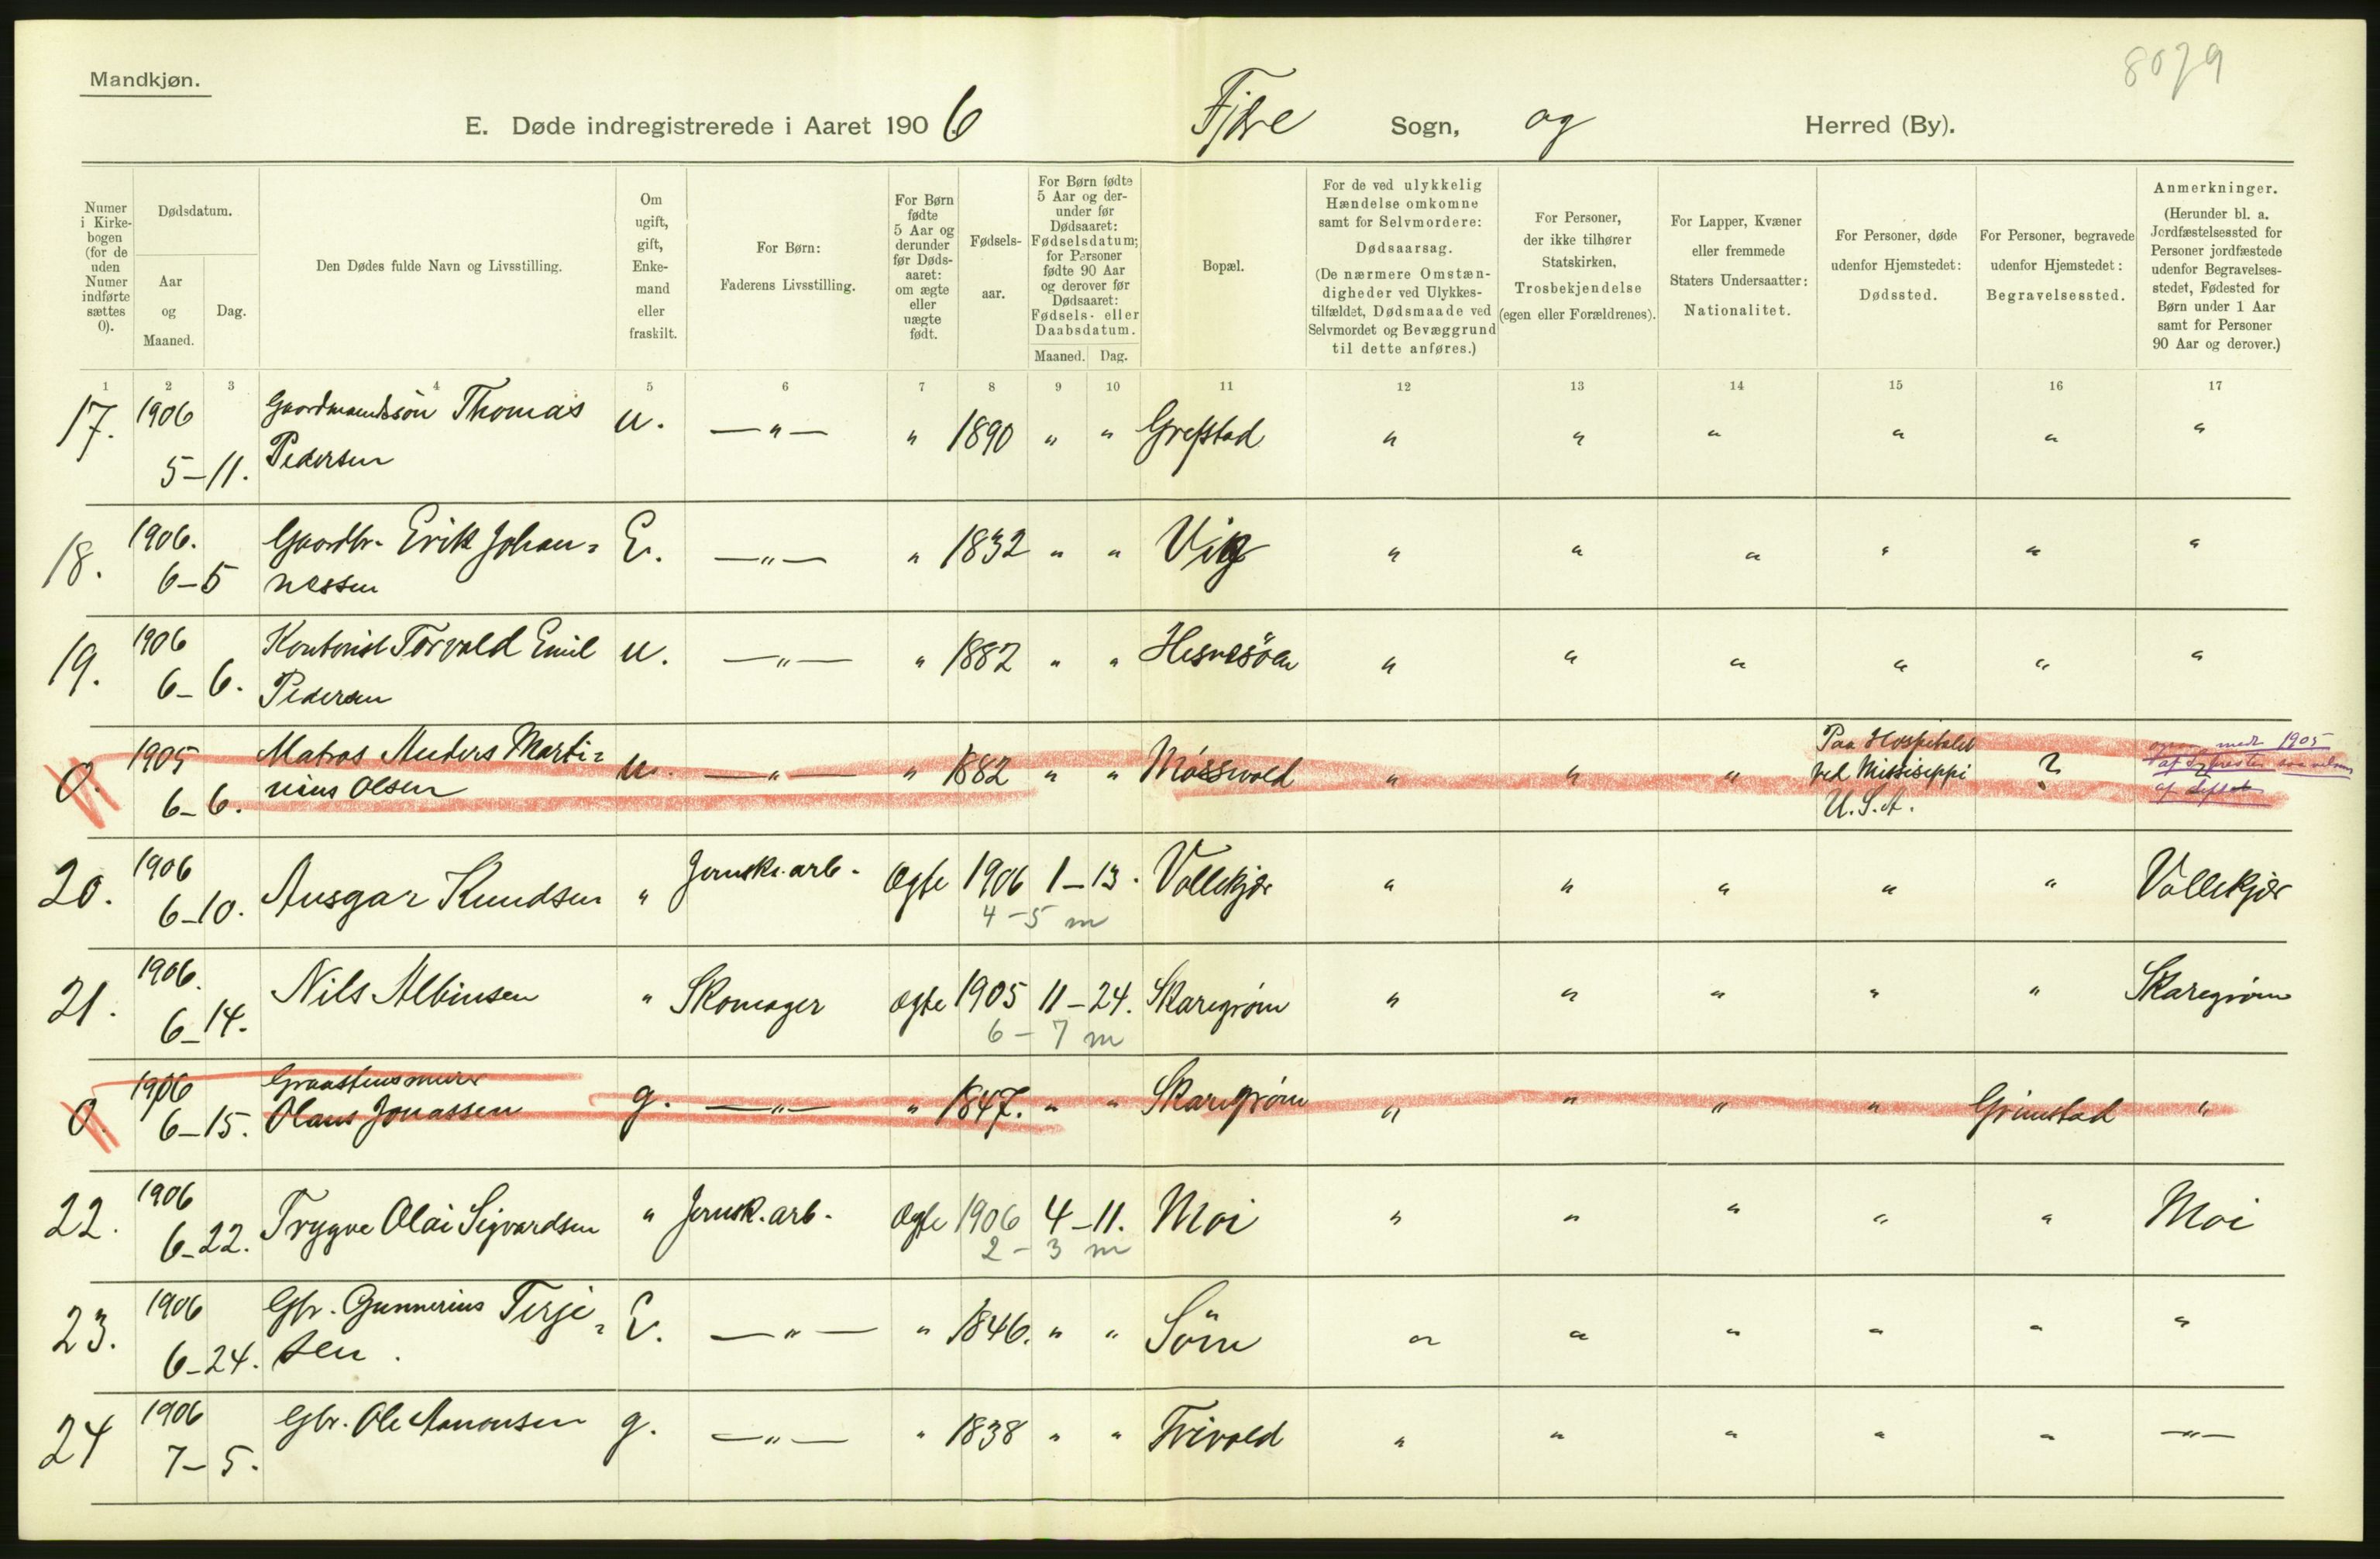 8079
Mandkjøn.
E. Døde indregistrerede i Aaret 1906 Fjære Sogn, og Herred (By).
Numer i Kirkebogen (for de uden Numer indførte sættes 0).
Dødsdatum.
Aar og Maaned.
Dag.
Den Dødes fulde Navn og Livsstilling.
Om ugift, gift, Enkemand eller fraskilt.
For Børn: Faderens Livsstilling.
For Børn fødte 5 Aar og derunder før Dødsaaret: om ægte eller uægte født.
Fødselsaar.
For Børn fødte 5 Aar og derunder før Dødsaaret: Fødselsdatum; for Personer fødte 90 Aar og derover før Dødsaaret: Fødsels- eller Daabsdatum.
Maaned. Dag.
Bopæl.
For de ved ulykkelig Hændelse omkomne samt for Selvmordere: Dødsaarsag. (De nærmere Omstændigheder ved Ulykkestilfældet, Dødsmaade ved Selvmordet og Bevæggrund til dette anføres.)
For Personer, der ikke tilhører Statskirken, Trosbekjendelse (egen eller Forældrenes).
For Lapper, Kvæner eller fremmede Staters Undersaatter: Nationalitet.
For Personer, døde udenfor Hjemstedet: Dødssted.
For Personer, begravede udenfor Hjemstedet: Begravelsessted.
Anmerkninger. (Herunder bl. a. Jordfæstelsessted for Personer jordfæstede udenfor Begravelsesstedet, Fødested for Børn under 1 Aar samt for Personer 90 Aar og derover.)
1 2 3 4 5 6 7 8 9 10 11 12 13 14 15 16 17
17. 1906 5-11. Gaardmandssøn Thomas Pedersen u. —"— " 1890 " " Grefstad " " " " " "
18. 1906. 6-5 Gaardbr. Erik Johan= nessen E. —"— " 1832 " " Vig " " " " " "
19. 1906 6-6. Kontorist Torvald Emil Pedersen u. —"— " 1882 " " Hesnesöen " " " " " "
0. 1905 6-6. Matros Anders Marti= nius Olsen u. —"— " 1882 " " Mosswold " " " Paa Hospitalet ved Mississeppi U.S.A. ? medt 1905
20. 1906 6-10. Ansgar Knudsen " Jernsk. arb. Ægte 1906 1-13. Vollekjær " " " " " Vollekjær
4-5 m
21. 1906. 6-14. Nils Albinsen " Skomager Ægte 1905 11-24. Skaregrøm " " " " " Skaregrøm
6-7 m
0. 1906 6-15. Graastensmurer Olaus Jonassen g. —"— " 1847. " " Skaregrøm " " " " Grimstad "
22. 1906 6-22. Trygve Olai Sigvardsen " Jernsk. arb. Ægte 1906 4-11. Moi " " " " " Moi
2-3 m
23. 1906 6-24. Gbr. Gunnerius Terje= sen. E. —"— " 1846. " " Söm " " " " " "
24 1906 7-5. Gbr. Ole Aanonsen g. —"— " 1838 " " Trivold " " " " " —"—